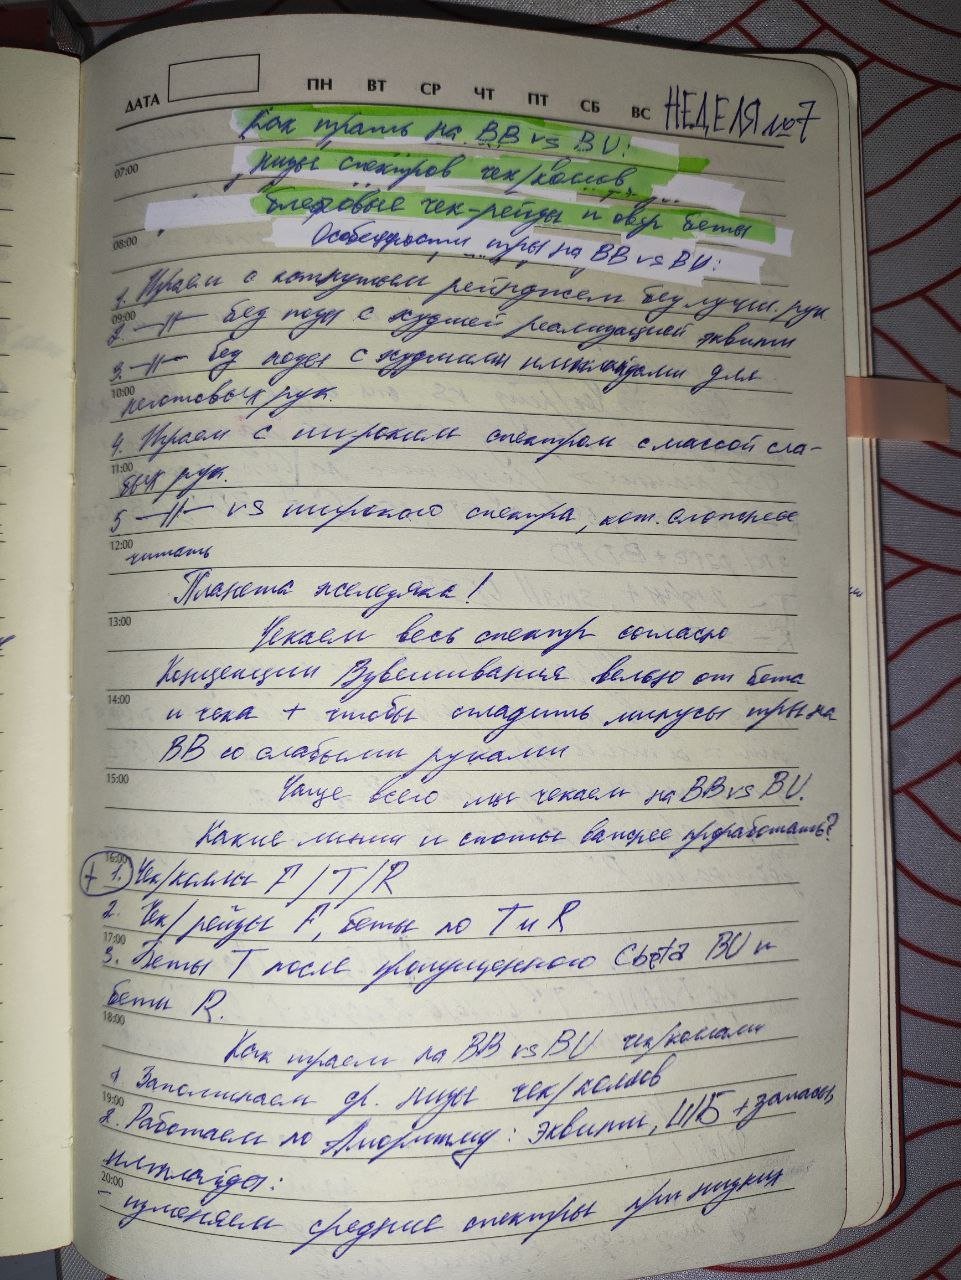 ДАТА ПН ВТ СР ЧТ ПТ СБ ВС НЕДЕЛЯ №7
Как играть на BB vs BU:
07:00
низы спектров чек/коллов
блефовые чек-рейзы и овер беты
08:00
Особенности игры на BB vs BU:
1. Играем с колящим рейнджем без лучш. рук
09:00
2. —//— без позы с худшей реализацией эквити
3. —//— без позы с худшими имплайдами для
10:00
неготовых рук.
4. Играем с широким спектром с массой сла-
11:00
бых рук.
5 —//— vs широкого спектра, кот. сложнее
12:00
читать
Планета железяка!
13:00
Чекаем весь спектр согласно
Концепции Взвешивания вельью от бета
14:00
и чека + чтобы сгладить минусы игры на
BB со слабыми руками
15:00
Чаще всего мы чекаем на BB vs BU.
Какие линии и споты важнее проработать?
16:00
+ 1. Чек/коллы F/T/R
2. Чек/рейзы F, беты по T и R
17:00
3. Беты T после пропущенного Cbeta BU и
беты R.
18:00
Как играем на BB vs BU чек/коллами
1. Запоминаем ср. низы чек/коллов
19:00
2. Работаем по Алгоритму: эквити, ШБ + запасы
имплайды:
20:00
- изменяем средние спектры при низких